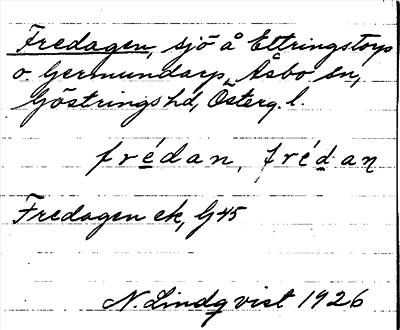 Fredagen, sjö å Ettringstorps
o. Germundarp, Åsbo sn,
Göstrings hd, Österg. l.
frédan, frédan
Fredagen ek, G 45
N. Lindqvist 1926